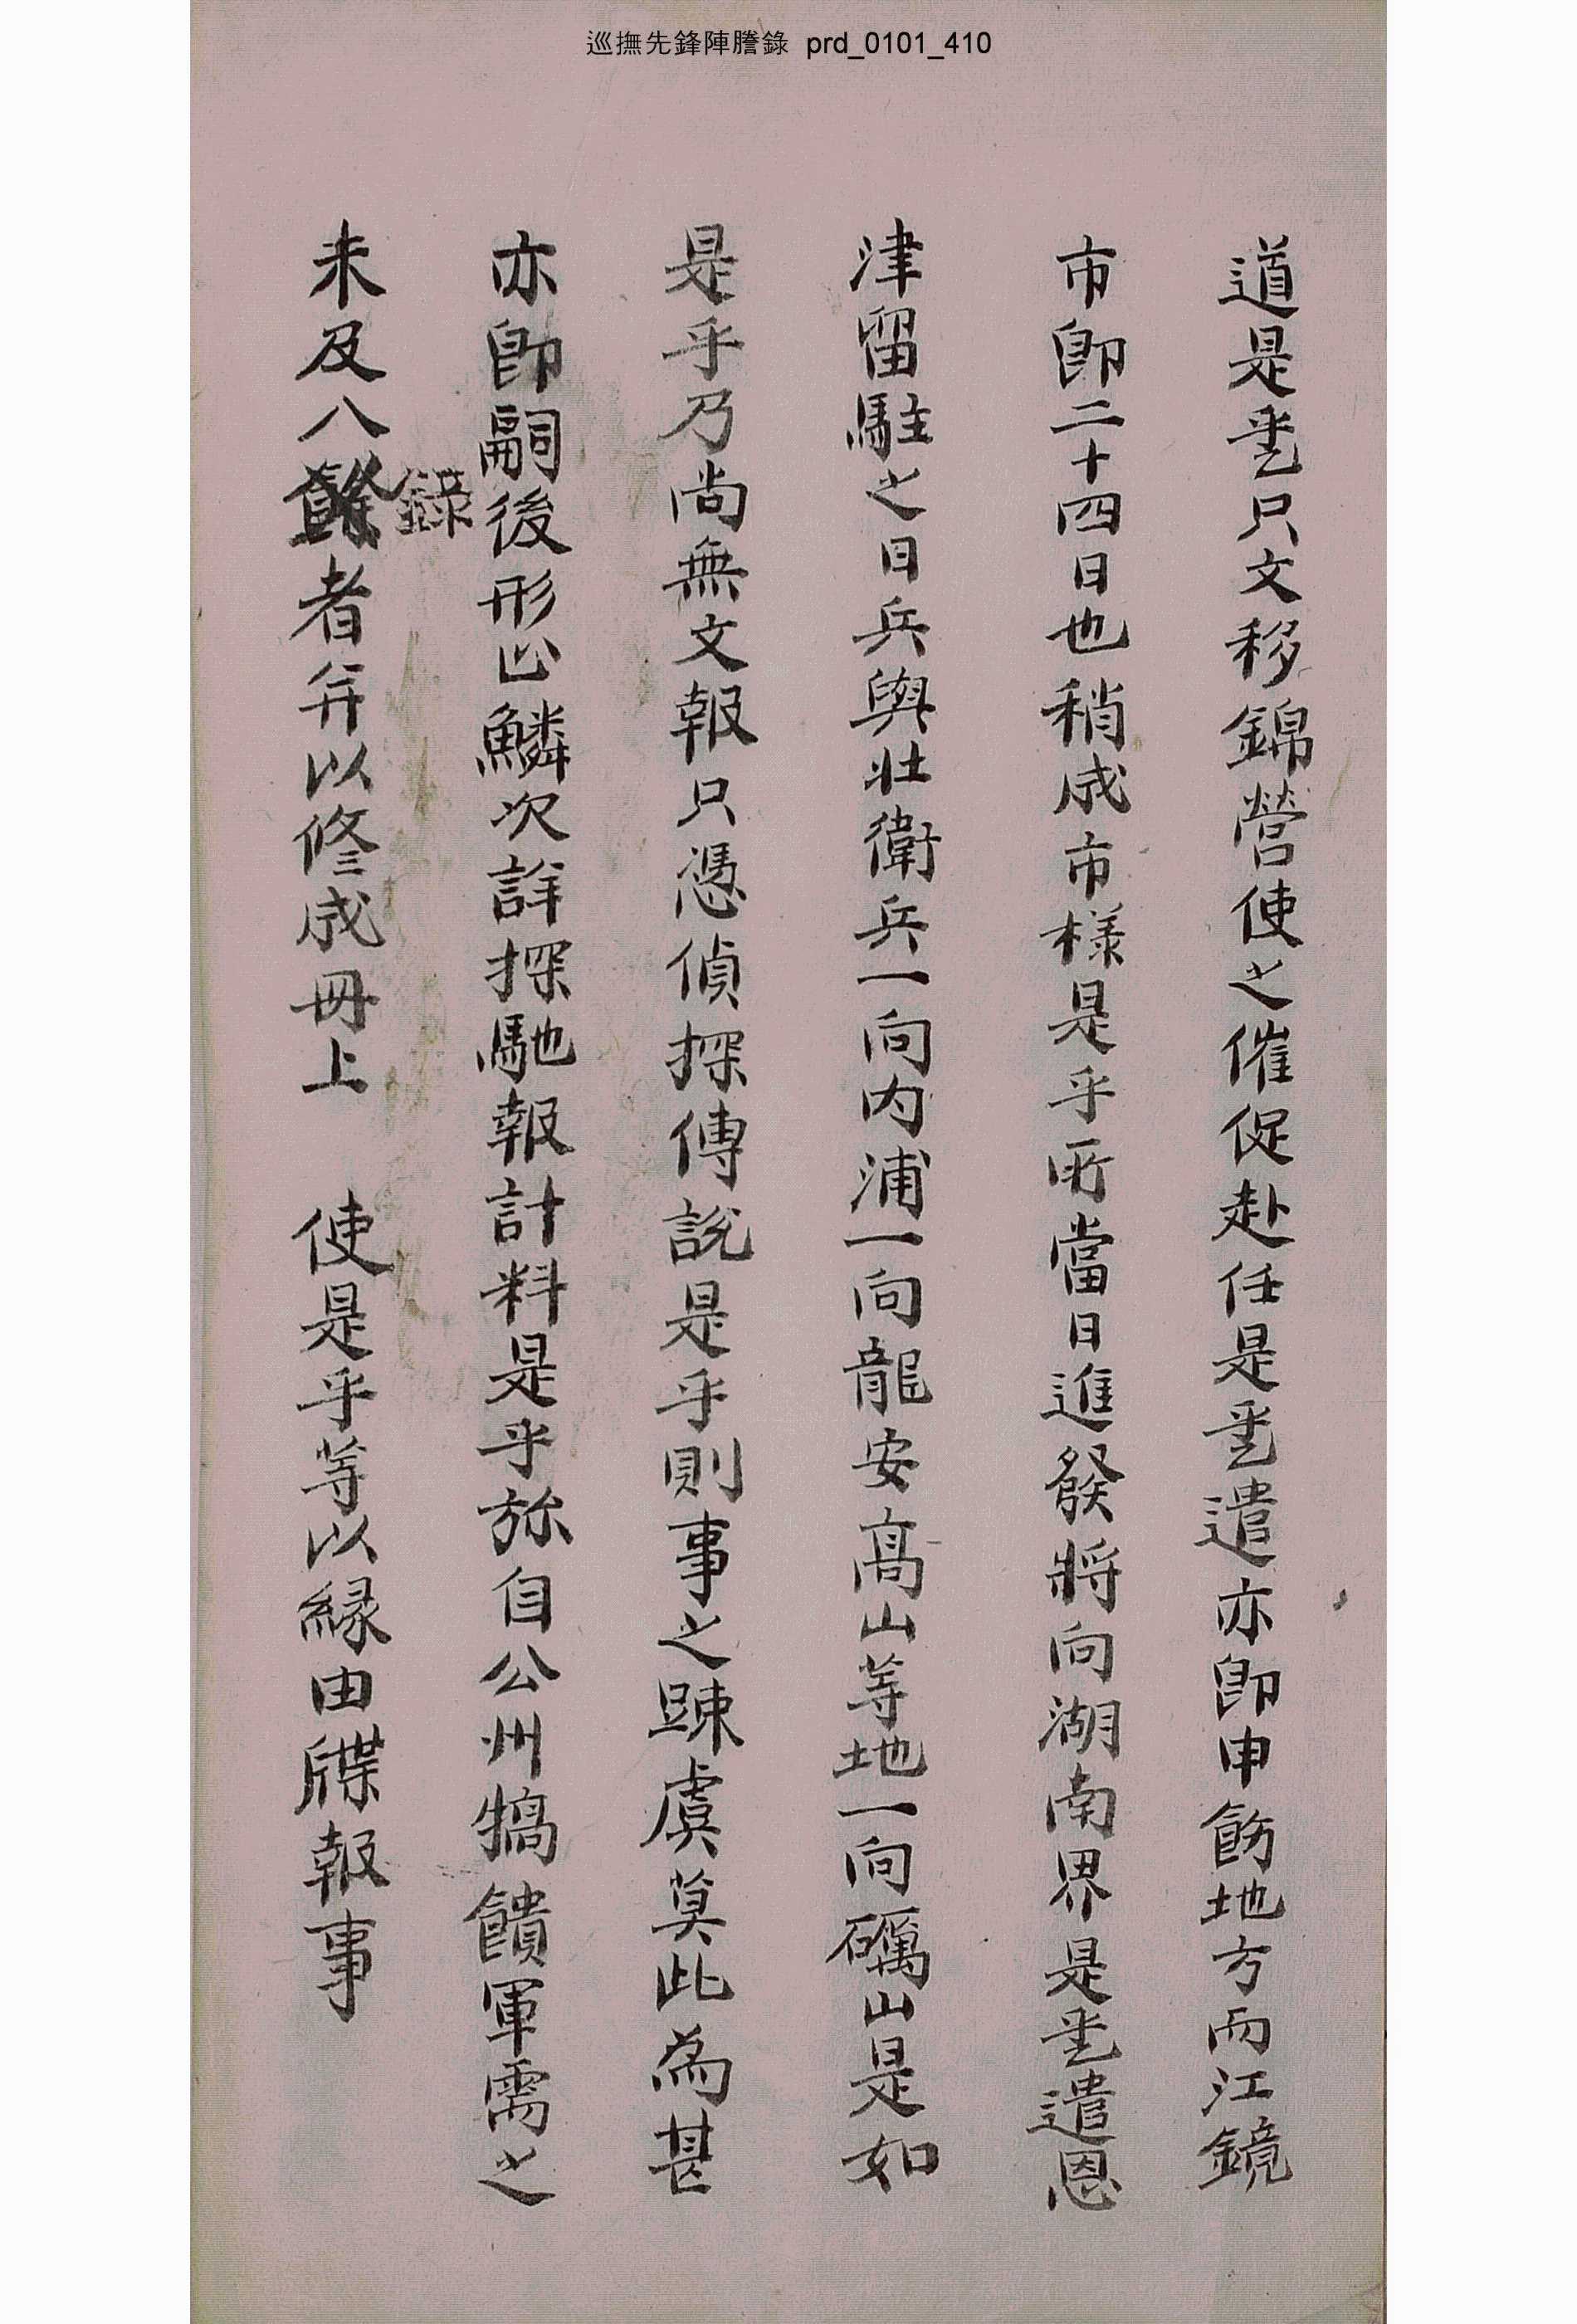 巡撫先鋒陣謄錄 prd_0101_410
道是乎只文移錦營使之催促赴任是乎遣亦卽申飭地方而江鏡
市卽二十四日也稍成市樣是乎所當日進發將向湖南界是乎遣恩
津留駐之日兵與壯衛兵一向內浦一向龍安高山等地一向礪山是如
是乎乃尚無文報只憑偵探傳說是乎則事之踈虞莫此爲甚
亦卽嗣後形止鱗次詳探馳報計料是乎旀自公州犒饋軍需之
未及入錄者并以修成冊上 使是乎等以緣由牒報事